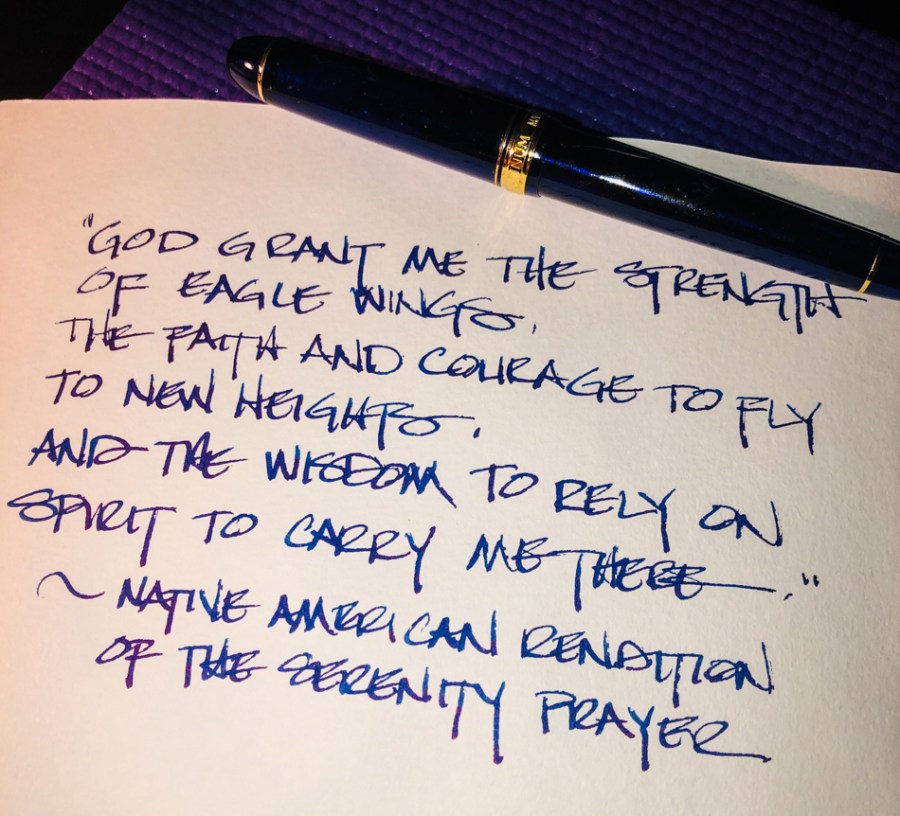 NUM
"GOD GRANT ME THE STRENGTH
OF EAGLE WINGS,
THE FAITH AND COURAGE TO FLY
TO NEW HEIGHTS,
AND THE WISDOM TO RELY ON
SPIRIT TO CARRY ME THERE."
~ NATIVE AMERICAN RENDITION
OF THE SERENITY PRAYER